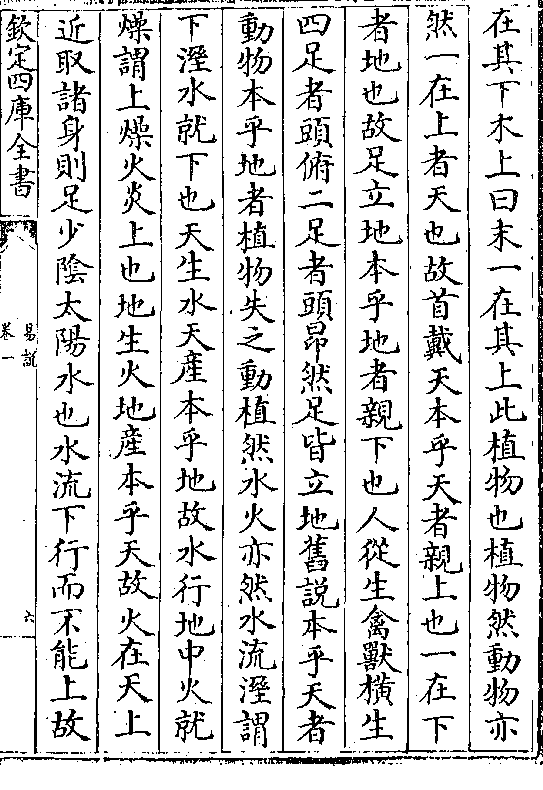 在其下木上曰末一在其上此植物也植物然動物亦
然一在上者天也故首戴天本乎天者親上也一在下
者地也故足立地本乎地者親下也人從生禽獸橫生
四足者頭俯二足者頭昂然足皆立地舊説本乎天者
動物本乎地者植物失之動植然水火亦然水流溼謂
下溼水就下也天生水天產本乎地故水行地中火就
燥謂上燥火炎上也地生火地產本乎天故火在天上
近取諸身則足少陰太陽水也水流下行而不能上故
欽定四庫全書
易說
卷一
六